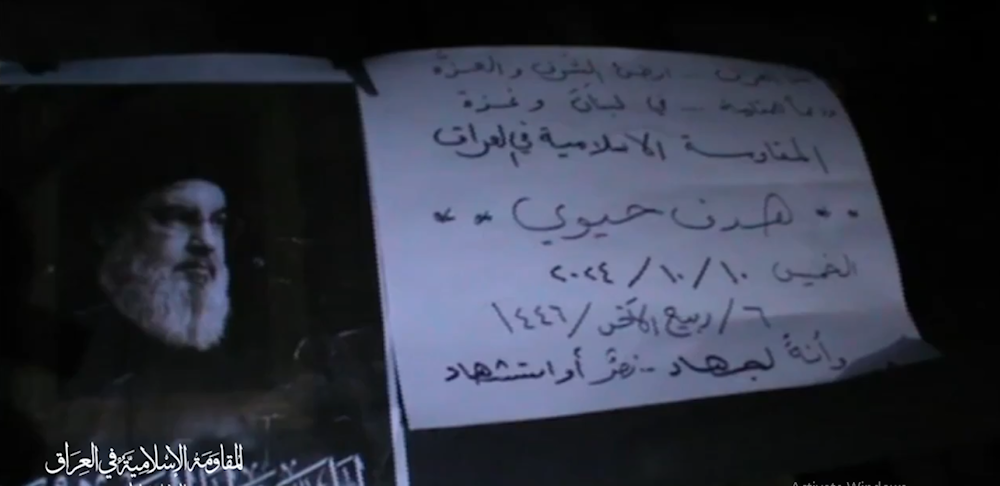 العراق .. ارض الشرف والعزة
.. في لبنان و غزة
المقاومة الاسلامية في العراق
** هدف حيوي **
الخميس ١٠/١٠/٢٠٢٤
٦/ربيع الآخر/١٤٤٦
وأنهُ لجهاد .. نصرٌ أو استشهاد
المقاومة الإسلامية في العراق
Activate Windows